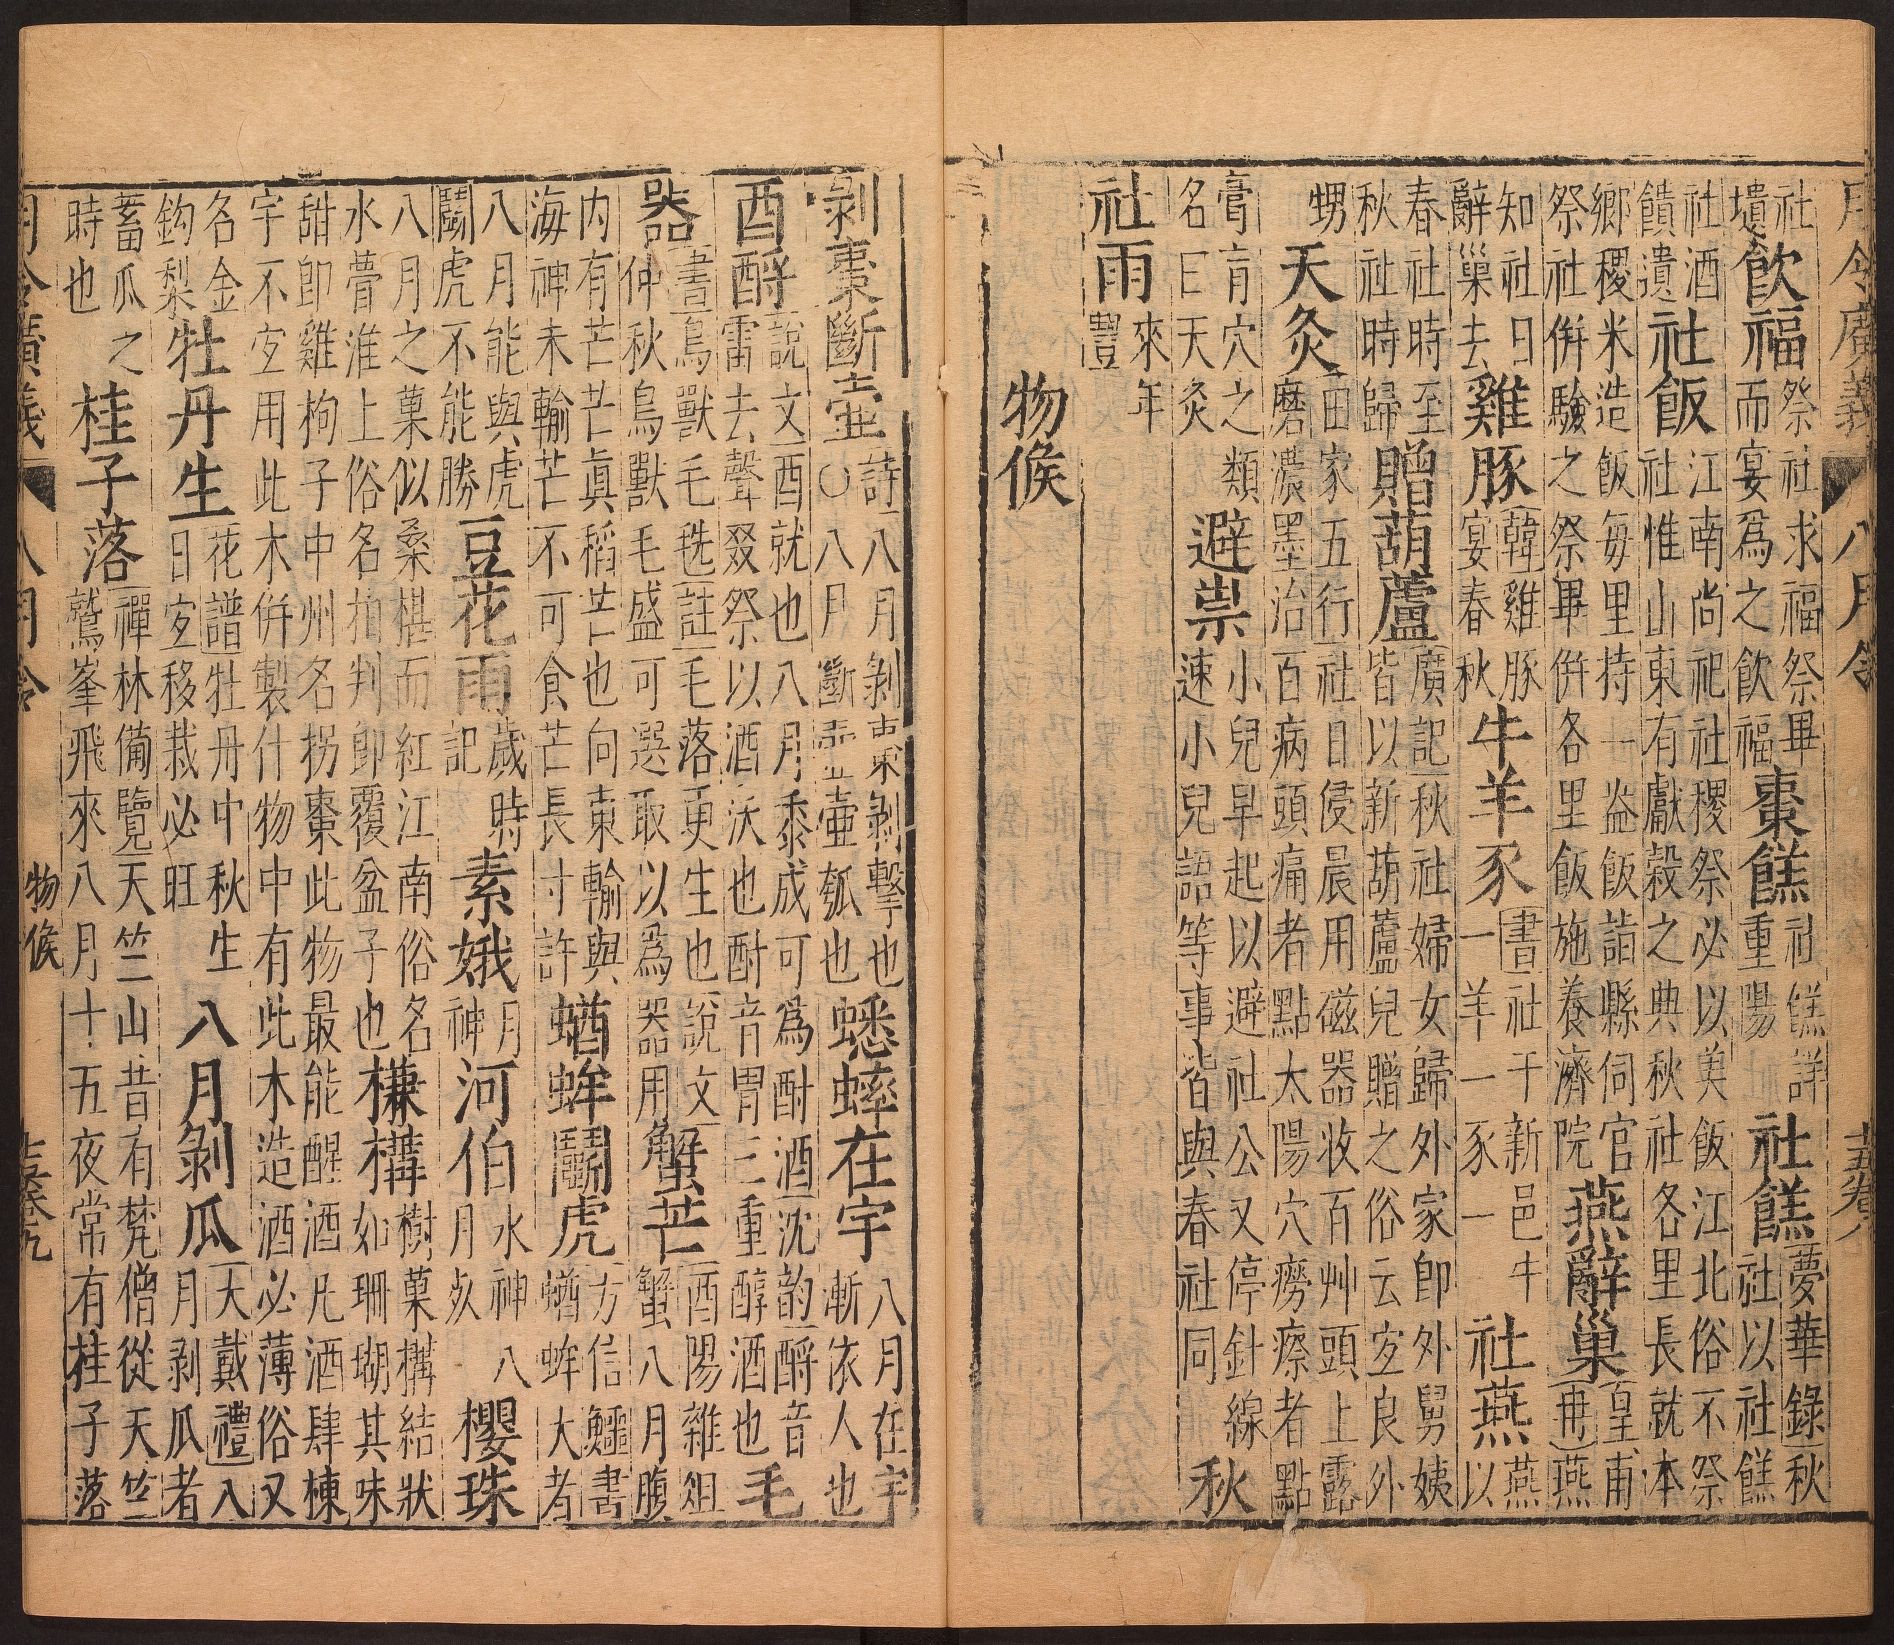 月令廣義 八月令
社墳 飲福 祭社求福祭畢而宴爲之飲福 棗餻 社餻詳重陽 社餻 夢華錄秋社以社餻
社酒饋遺 社飯 江南尚祀社稷祭必以美飯江北俗不祭社惟山東有獻穀之典秋社各里長就本
鄉稷米造飯每里持一盆飯詣縣伺官祭社併驗之祭畢併各里飯施養濟院 燕辭巢 皇甫冉燕
知社日辭巢去 雞豚 韓雞豚宴春秋 牛羊豕 書社于新邑牛一羊一豕一 社燕 燕以
春社時至秋社時歸 贈葫蘆 廣記秋社婦女歸外家卽外舅姨皆以新葫蘆兒贈之俗云宜良外
甥 天灸 田家五行社日侵晨用磁器收百艸頭上露磨濃墨治百病頭痛者點太陽穴癆瘵者點
膏肓穴之類名曰天灸 避祟 小兒早起以避社公又停針線速小兒語等事皆與春社同 秋
社雨 來年豐
物候
剝棗斷壺 詩八月剝棗剝擊也○八月斷壺壺瓠也 蟋蟀在宇 八月在宇漸依人也
酉酹 說文酉就也八月黍成可爲酎酒沈韵酹音雷去聲叕祭以酒沃也酎音胄三重醇酒也 毛
器 書鳥獸毛毨註毛落更生也說文仲秋鳥獸毛盛可選取以爲器用 蟹芒 酉陽雜俎蟹八月腹
内有芒芒眞稻芒也向東輸與海神未輸芒不可食芒長寸許 蝤蛑鬭虎 方信鱷書蝤蛑大者
八月能與虎鬭虎不能勝 豆花雨 歲時記 素娥 月神 河伯 水神八月夘 櫻珠
八月之菓似桑椹而紅江南俗名水蕾淮上俗名拍判卽覆盆子也 槺構 樹菓構結狀如珊瑚其味
甜卽雞枸子中州名拐棗此物最能醒酒凡酒肆棟宇不宜用此木併製什物中有此木造酒必薄俗又
名金鈎梨 牡丹生 花譜牡丹中秋生日宜移栽必旺 八月剝瓜 大戴禮八月剝瓜者
蓄瓜之時也 桂子落 禪林備覽天竺山昔有梵僧從天竺鷲峯飛來八月十五夜常有桂子落
月令廣義 八月令 物候